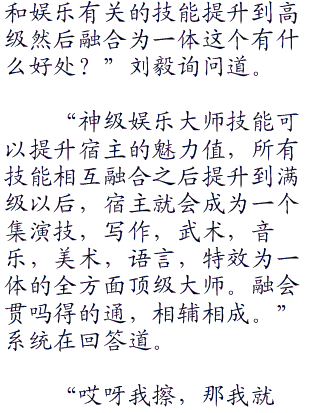 和娱乐有关的技能提升到高
级然后融合为一体这个有什
么好处？”刘毅询问道。
“神级娱乐大师技能可
以提升宿主的魅力值，所有
技能相互融合之后提升到满
级以后，宿主就会成为一个
集演技，写作，武术，音
乐，美术，语言，特效为一
体的全方面顶级大师。融会
贯吗得的通，相辅相成。”
系统在回答道。
“哎呀我擦，那我就